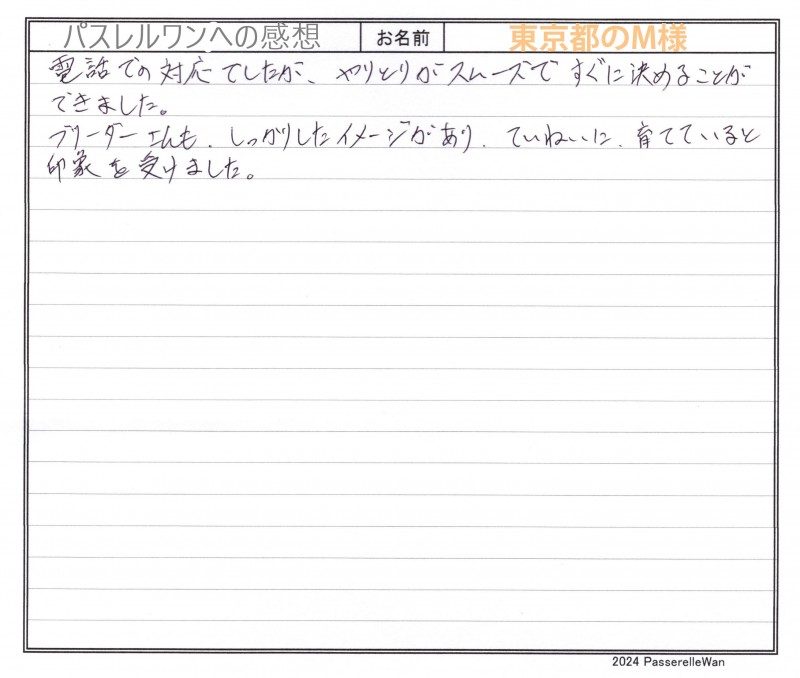 パスレルワンへの感想 お名前 東京都のM様
電話での対応でしたが、やりとりがスムーズですぐに決めることが
できました。
ブリーダーさんも、しっかりしたイメージがあり、ていねいに、育てていると
印象を受けました。
2024 PasserelleWan